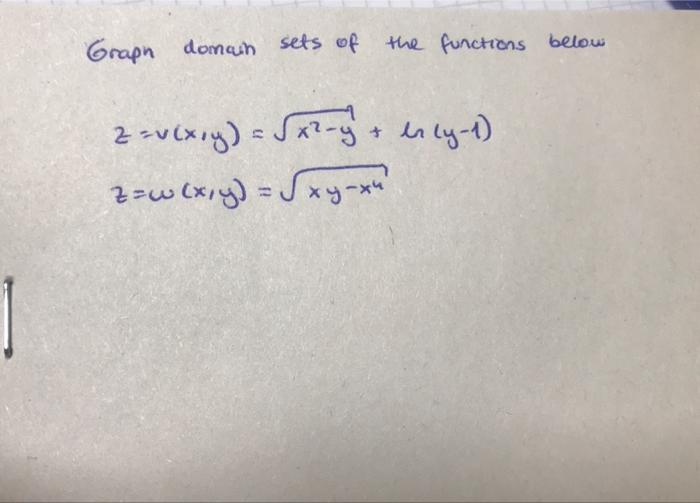 Graph domain sets of the functions below
z = v(x,y) = √x²-y + ln(y-1)
z = w(x,y) = √xy-x⁴